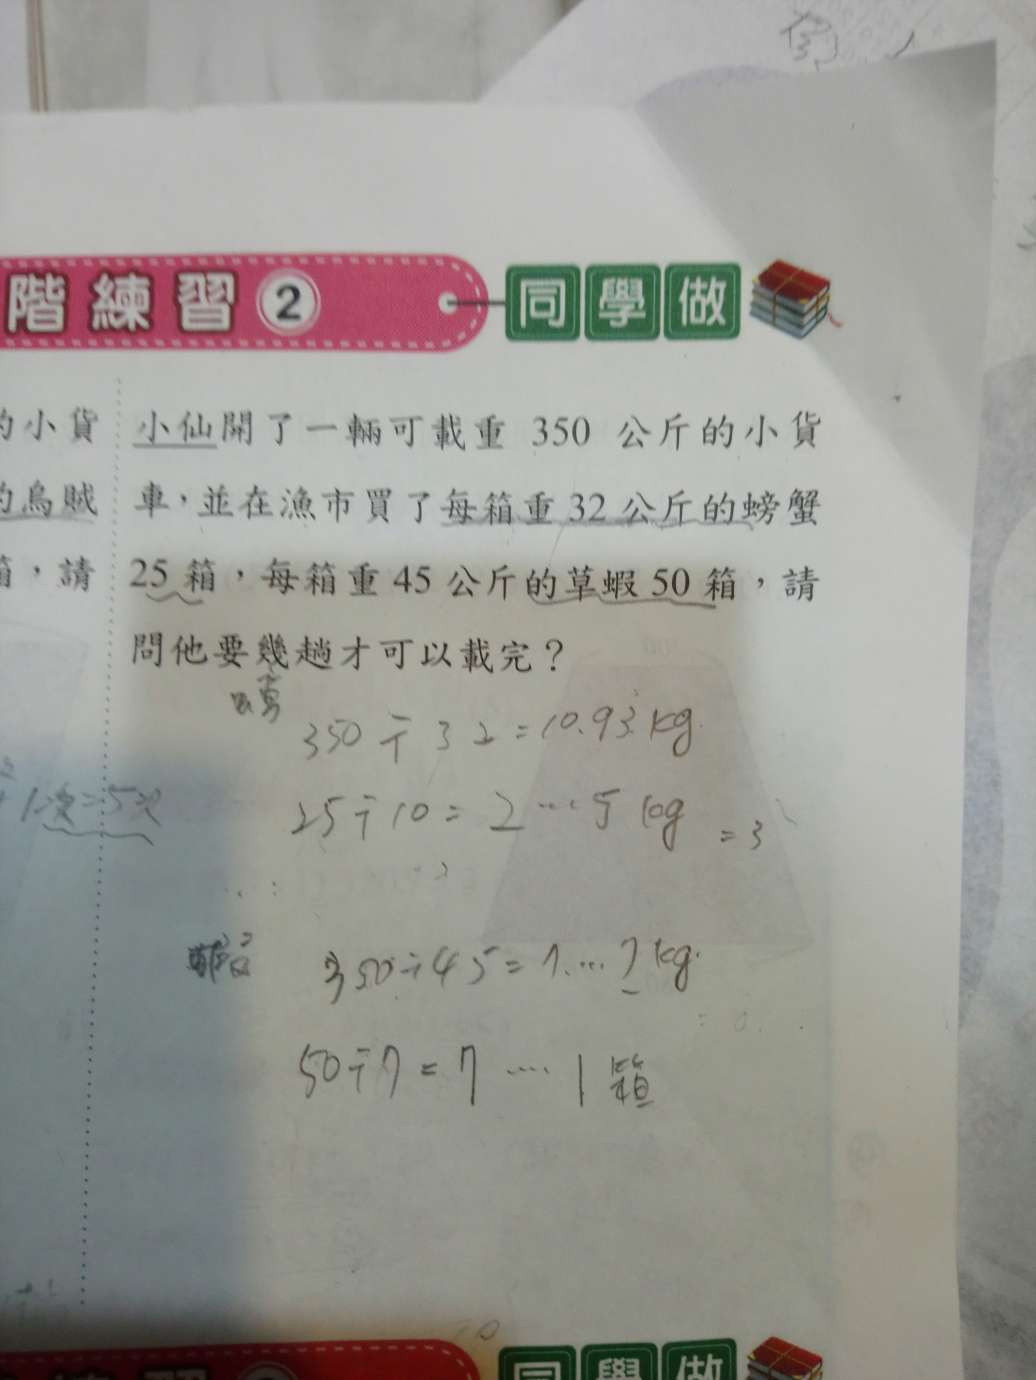 階練習 2 同學做
的小貨
的烏賊
箱，請
小仙開了一輛可載重 350 公斤的小貨
車，並在漁市買了每箱重 32 公斤的螃蟹
25 箱，每箱重 45 公斤的草蝦 50 箱，請
問他要幾趟才可以載完？
350÷32=10.93 kg.
25÷10=2…5 kg =3
350÷45=7…? kg.
50÷7=7…1 箱
同學做